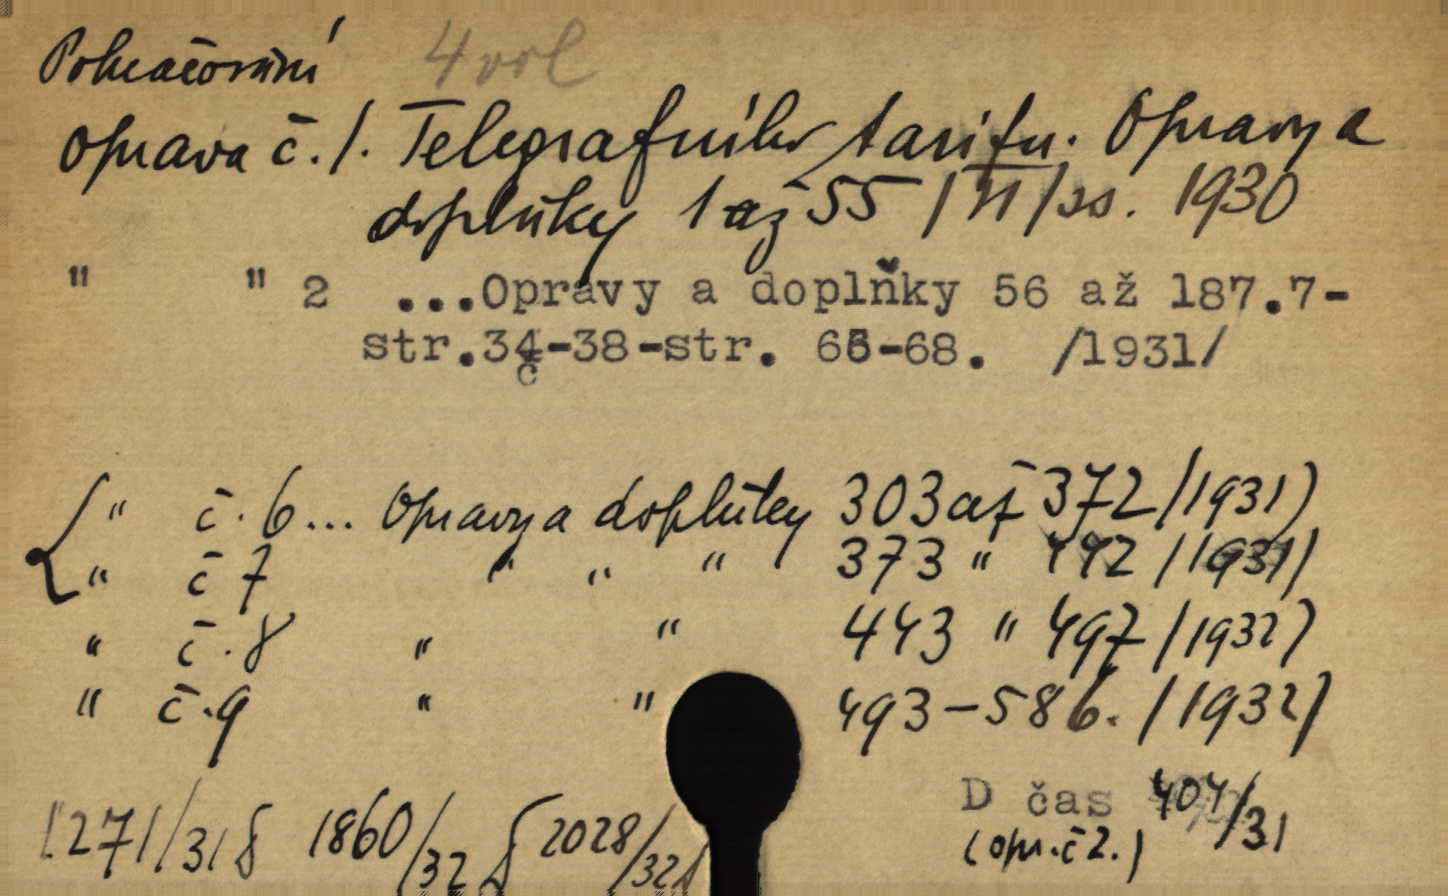 Pokračování 4 vol
Oprava č. 1. Telegrafního tarifu. Opravy a
doplňky 1 až 55 / /ss. 1930
" " 2 ...Opravy a doplňky 56 až 187.7-
str.34-38-str. 66-68. /1931/
č
" č. 6... Opravy a doplňky 303 až 372 /1931)
" č 7 " " " 373 " 442 /1931/
" č. 8 " " 443 " 492 /1932)
" č. 9 " " 493-586. /1932/
1271/31 § 1860/32 § 2028/32 §
D čas 404/31
(opr. č 2.)